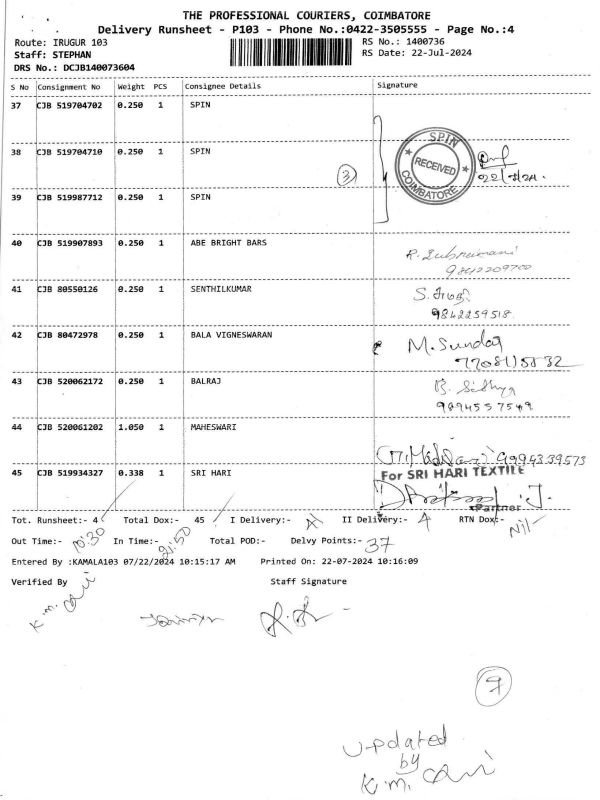 THE PROFESSIONAL COURIERS, COIMBATORE
Delivery Runsheet - P103 - Phone No.:0422-3505555 - Page No.:4
Route: IRUGUR 103 RS No.: 1400736
Staff: STEPHAN RS Date: 22-Jul-2024
DRS No.: DCJB140073604
S No Consignment No Weight PCS Consignee Details Signature
37 CJB 519704702 0.250 1 SPIN
38 CJB 519704710 0.250 1 SPIN
SPIN RECEIVED COIMBATORE
3
39 CJB 519987712 0.250 1 SPIN
40 CJB 519907893 0.250 1 ABE BRIGHT BARS
R. Subramani
9842209700
41 CJB 80550126 0.250 1 SENTHILKUMAR
9842259518
42 CJB 80472978 0.250 1 BALA VIGNESWARAN
M. Sundar
43 CJB 520062172 0.250 1 BALRAJ
B. Sidhya
9894557549
44 CJB 520061202 1.050 1 MAHESWARI
9994339573
45 CJB 519934327 0.338 1 SRI HARI
For SRI HARI TEXTILE
Partner
Tot. Runsheet:- 4 Total Dox:- 45 I Delivery:- II Delivery:- 4 RTN Dox:- Nil
Out Time:- 10:30 In Time:- 21:50 Total POD:- Delvy Points:- 37
Entered By :KAMALA103 07/22/2024 10:15:17 AM Printed On: 22-07-2024 10:16:09
Verified By Staff Signature
K.m.
9
Updated
by
K.m.